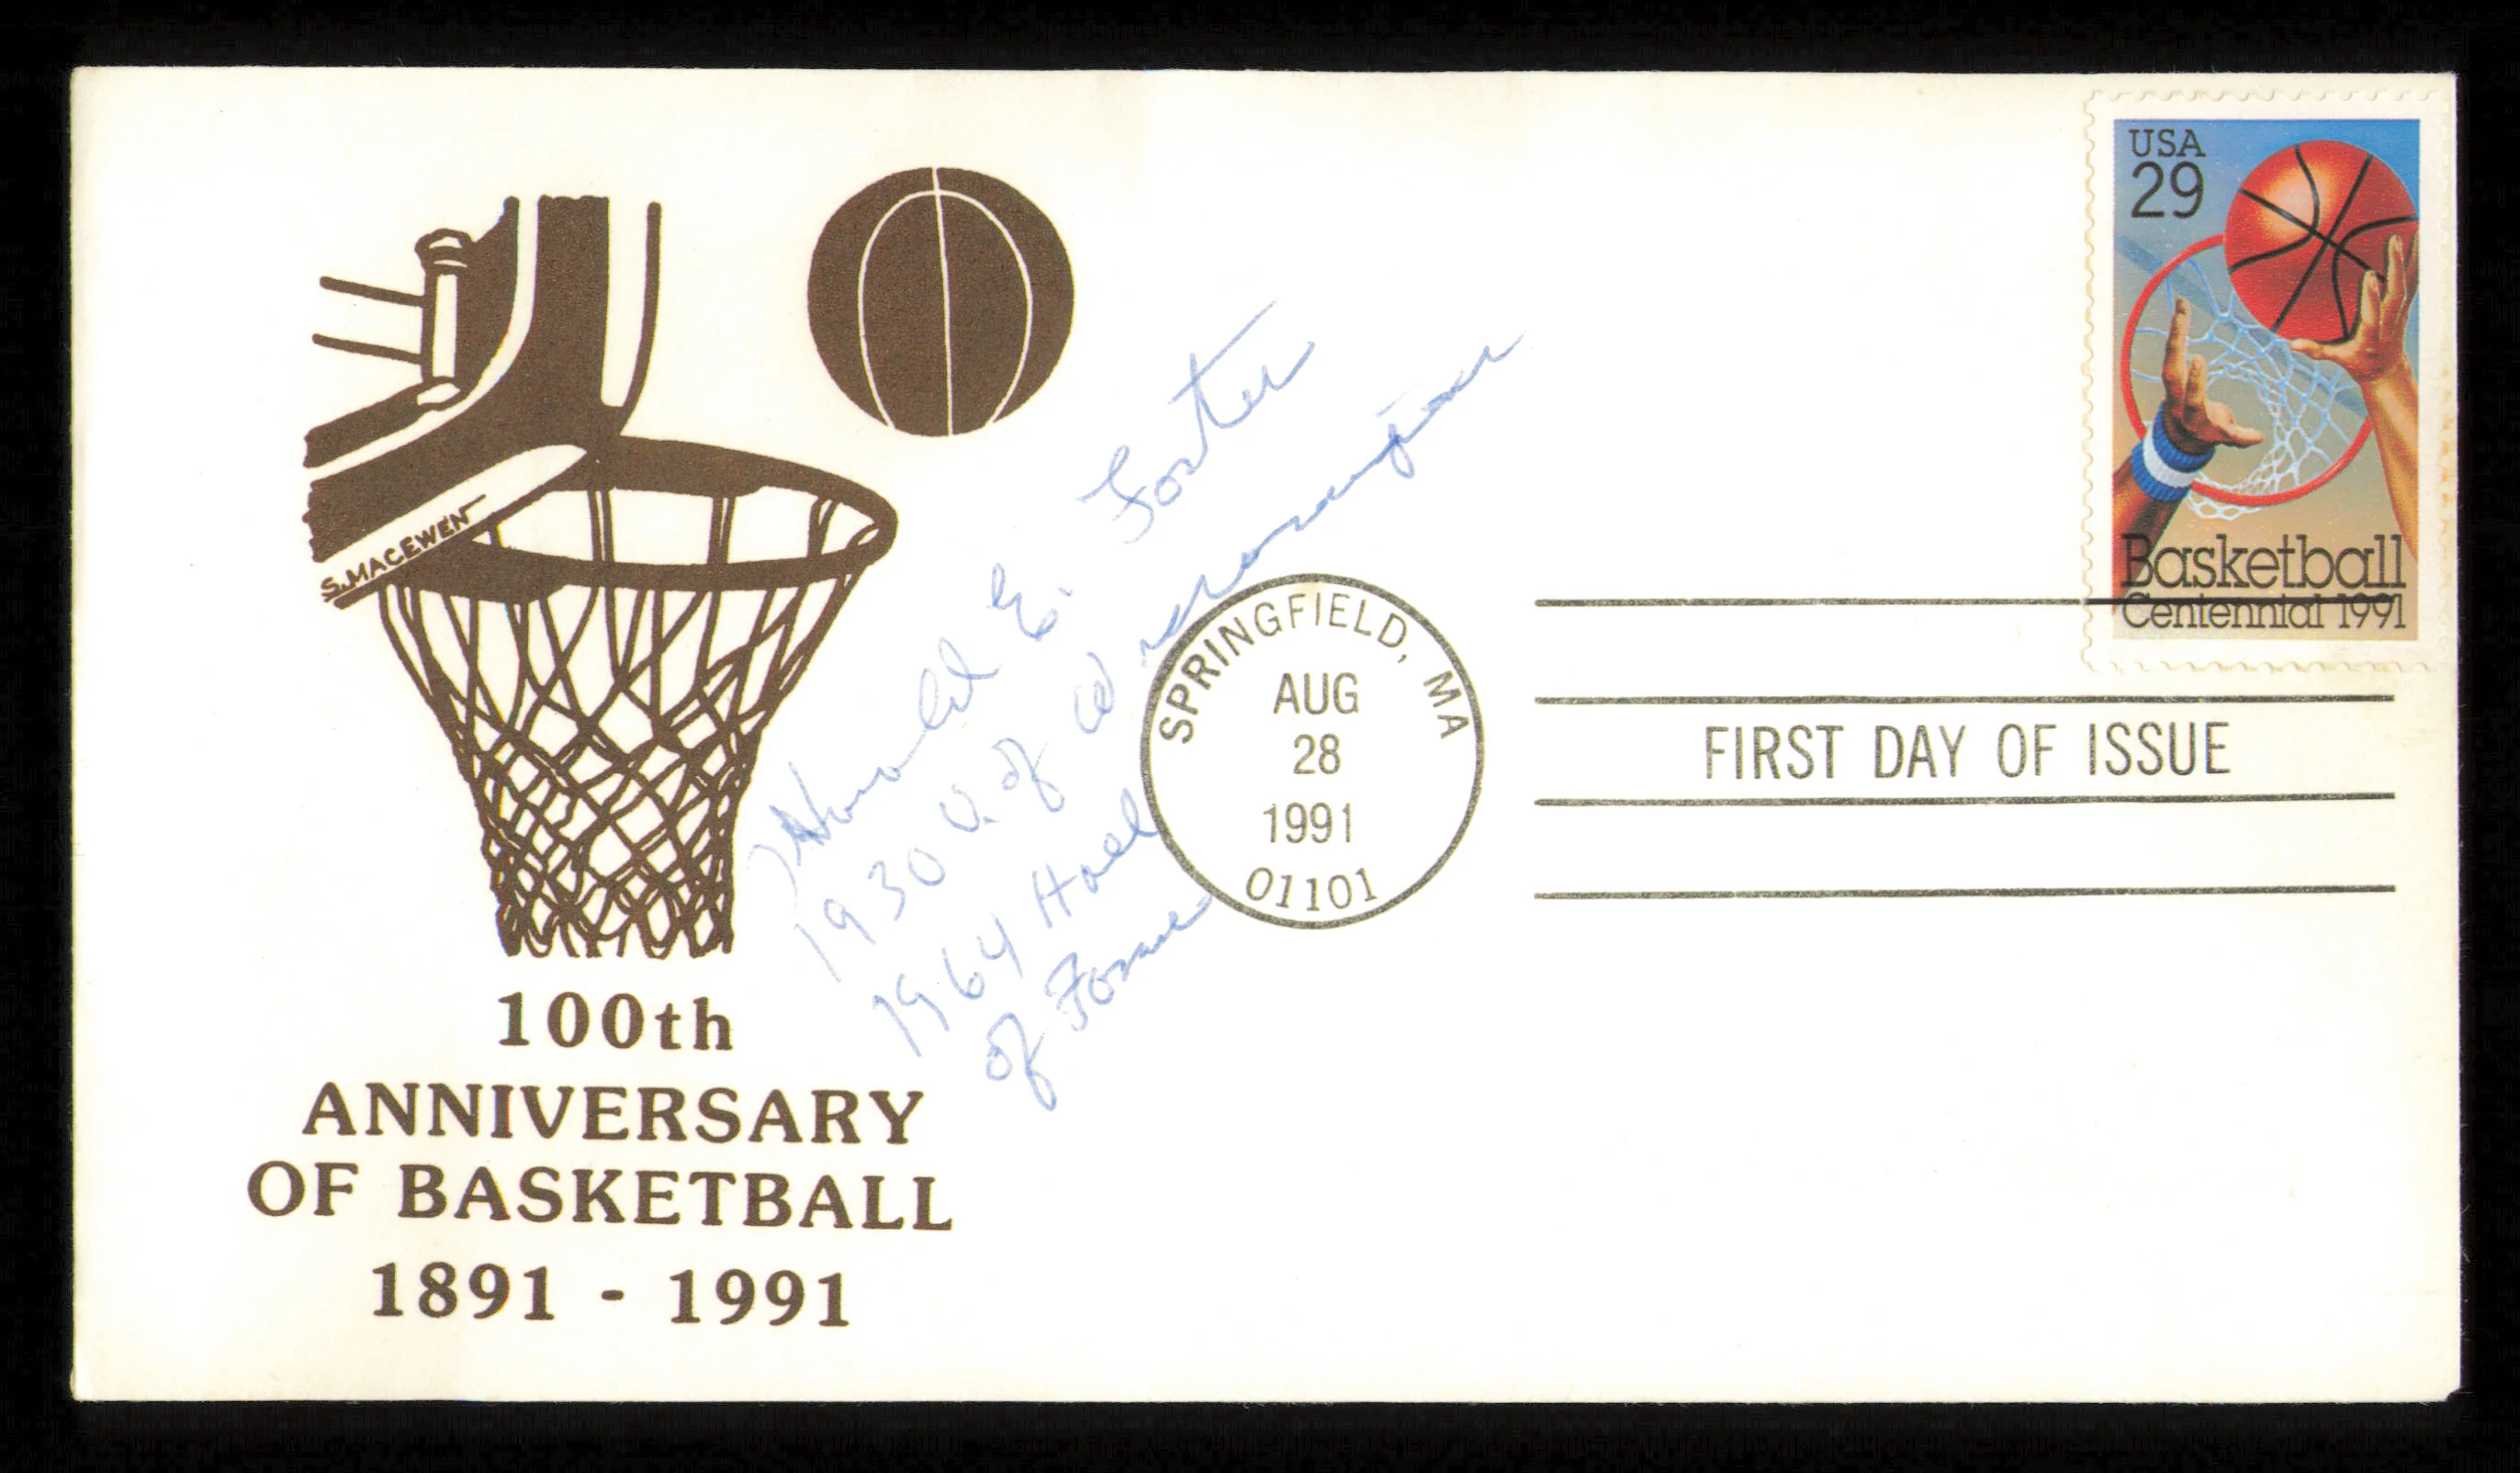 USA
29
Basketball
Centennial 1991
S.MACEWEN
Harold E. Foster
1930 U. of Wisconsin
1964 Hall
of Fame
SPRINGFIELD, MA
AUG
28
1991
01101
FIRST DAY OF ISSUE
100th
ANNIVERSARY
OF BASKETBALL
1891 - 1991